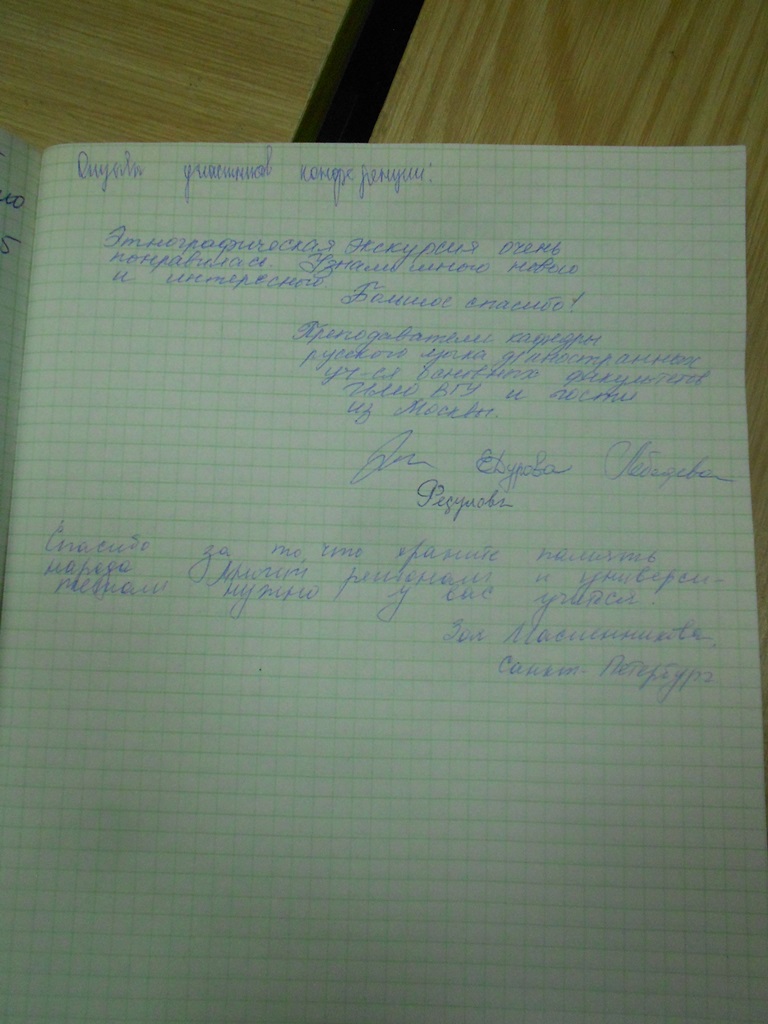 ло
5
участников конференции:
Этнографическая экскурсия очень
понравилась. Узнали много нового
и интересного
Большое спасибо!
Преподаватели кафедры
русского языка иностранных
уч-ся основных факультетов
ВГУ и гости
из Москвы.
Дурова Лебедева
Федулова
Спасибо за то, что храните память
народа регионам и универси-
тетам нужно у вас учиться.
Зоя Масленникова,
Санкт-Петербург